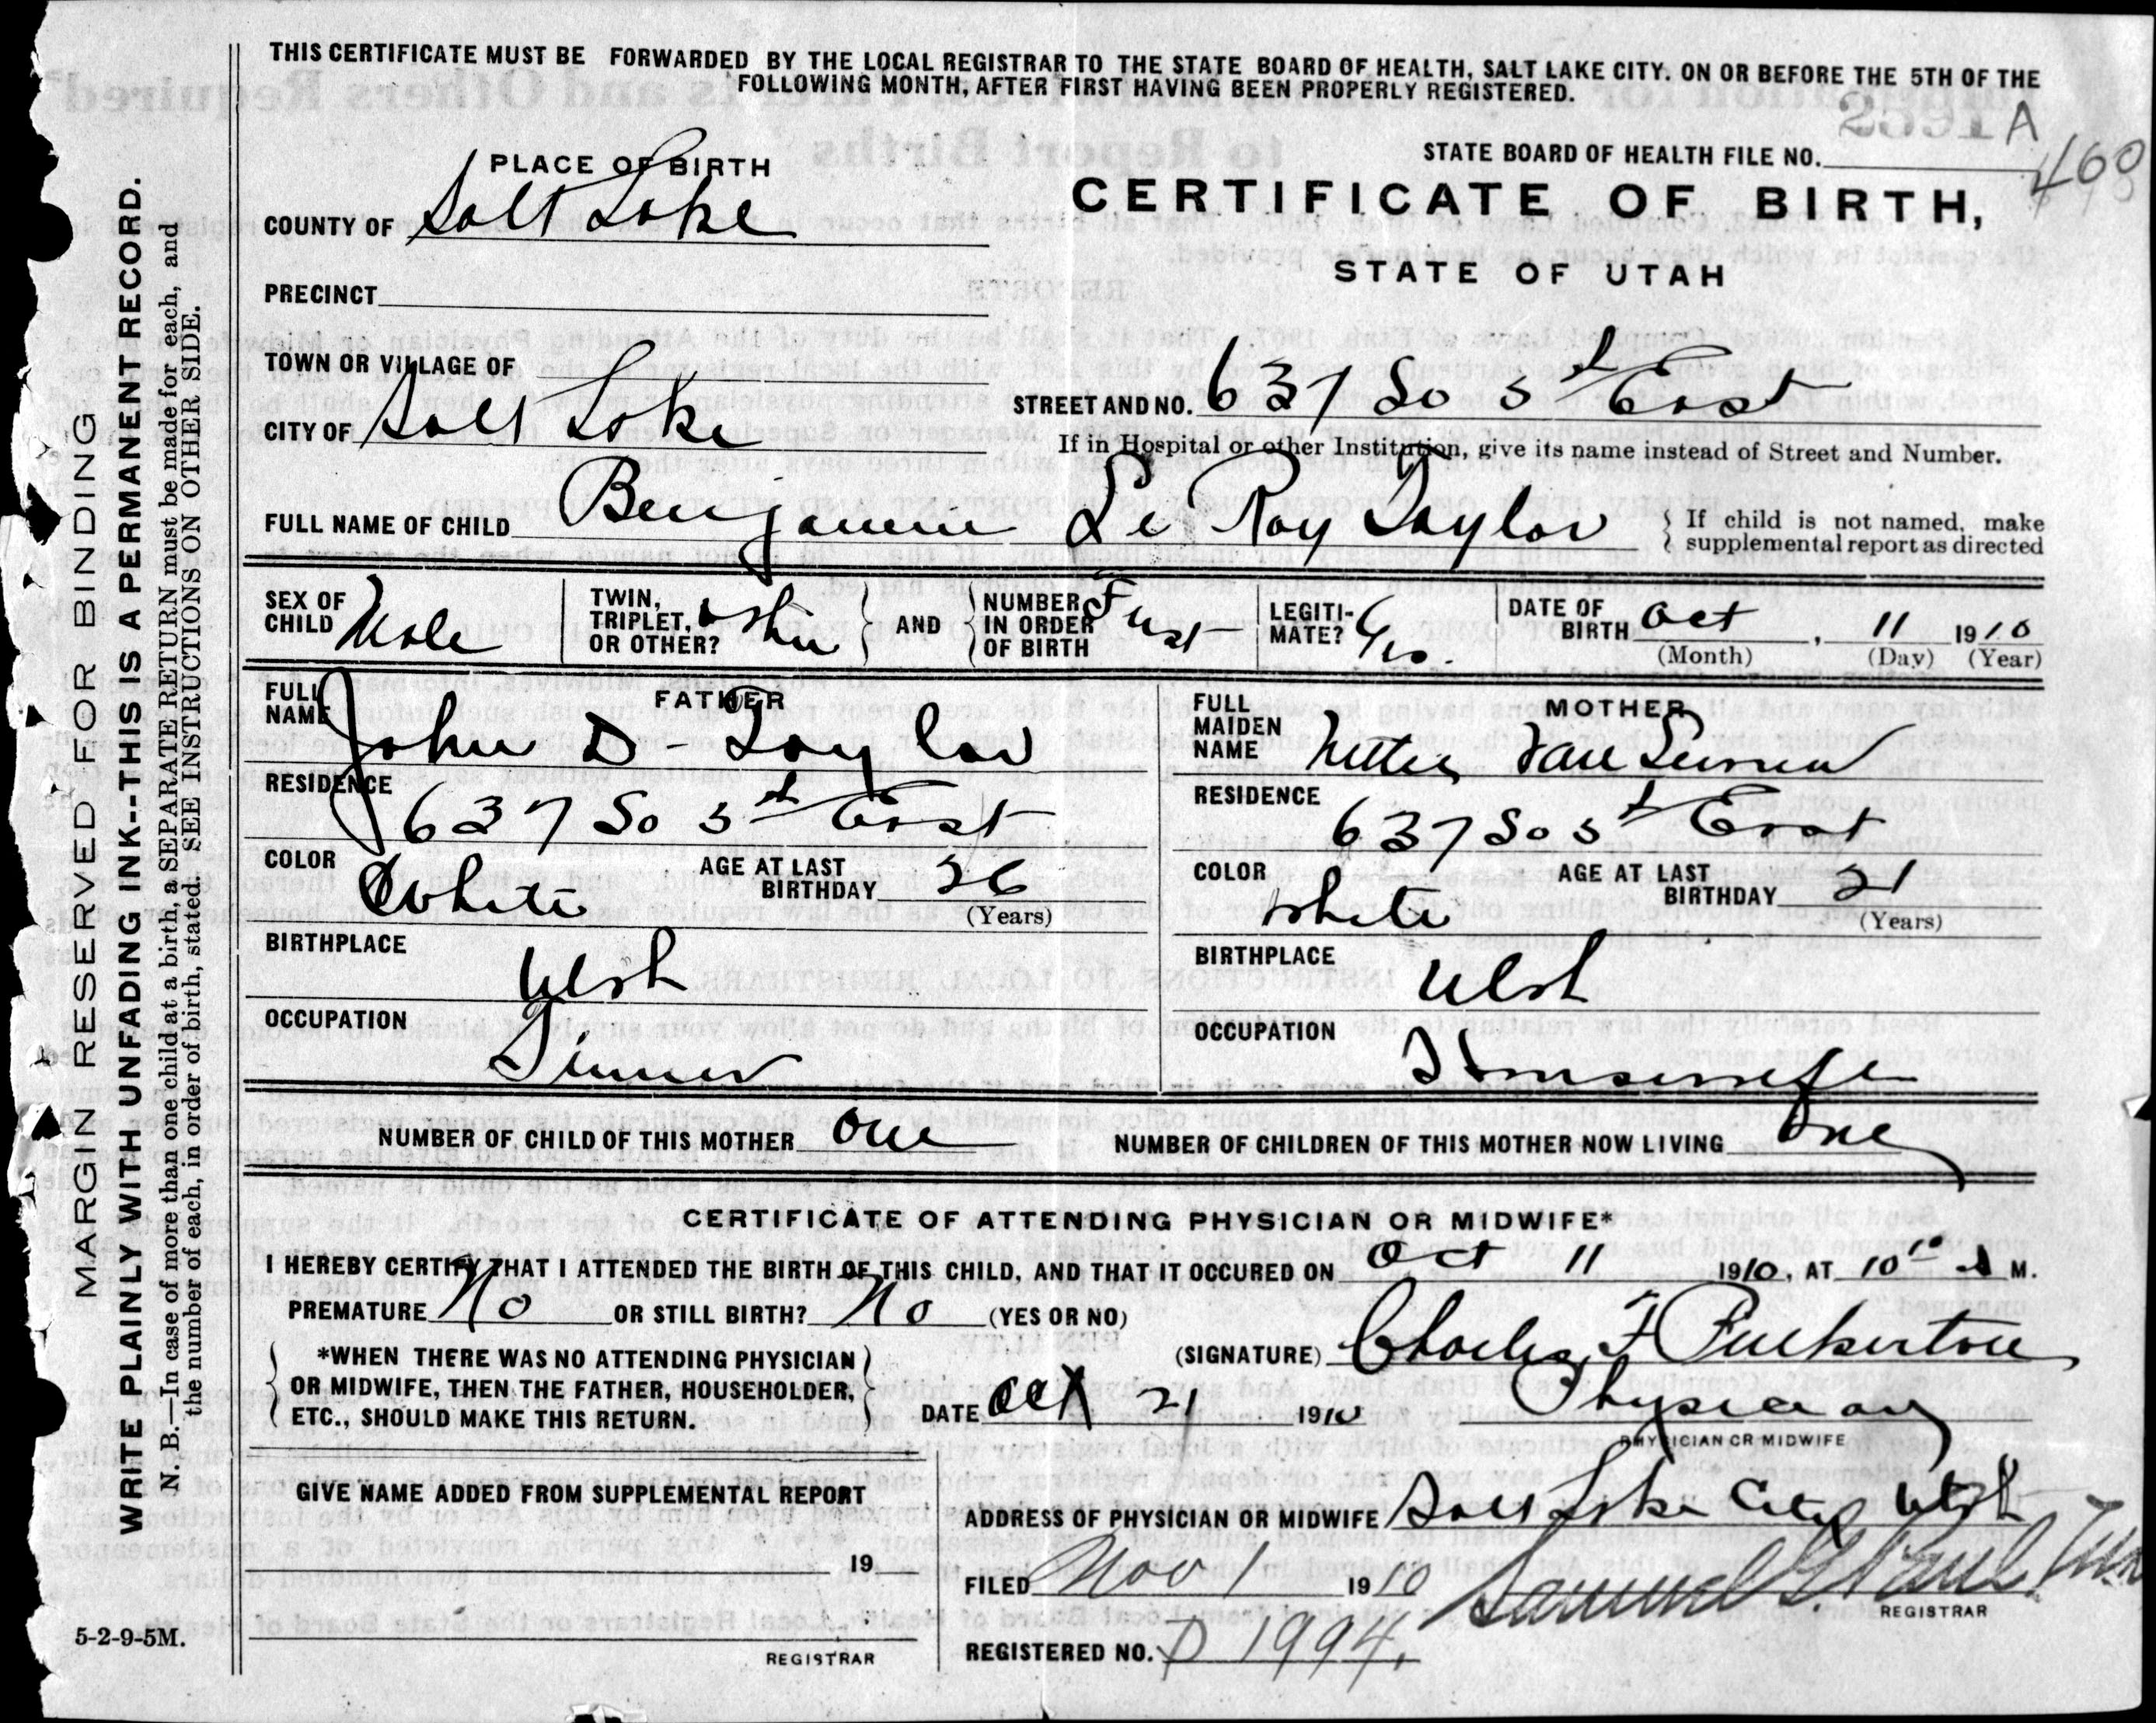 THIS CERTIFICATE MUST BE FORWARDED BY THE LOCAL REGISTRAR TO THE STATE BOARD OF HEALTH, SALT LAKE CITY, ON OR BEFORE THE 5TH OF THE
FOLLOWING MONTH, AFTER FIRST HAVING BEEN PROPERLY REGISTERED.
A
460
STATE BOARD OF HEALTH FILE NO.
PLACE OF BIRTH
CERTIFICATE OF BIRTH,
COUNTY OF Salt Lake
STATE OF UTAH
PRECINCT
TOWN OR VILLAGE OF
STREET AND NO. 637 So 5th East
CITY OF Salt Lake
If in Hospital or other Institution, give its name instead of Street and Number.
FULL NAME OF CHILD Benjamin Le Roy Taylor
If child is not named, make
supplemental report as directed
SEX OF CHILD Male
TWIN, TRIPLET, OR OTHER? other
AND
NUMBER IN ORDER OF BIRTH First
LEGITI-MATE? Yes.
DATE OF BIRTH Oct, 11 1910
(Month) (Day) (Year)
FATHER
FULL NAME John D - Taylor
RESIDENCE
637 So 5th East
COLOR White
AGE AT LAST BIRTHDAY 26
(Years)
BIRTHPLACE
Utah
OCCUPATION
Tinner
MOTHER
FULL MAIDEN NAME Nettie Van
RESIDENCE
637 So 5th East
COLOR White
AGE AT LAST BIRTHDAY 21
(Years)
BIRTHPLACE
Utah
OCCUPATION
Housewife
NUMBER OF CHILD OF THIS MOTHER One
NUMBER OF CHILDREN OF THIS MOTHER NOW LIVING One
CERTIFICATE OF ATTENDING PHYSICIAN OR MIDWIFE*
I HEREBY CERTIFY THAT I ATTENDED THE BIRTH OF THIS CHILD, AND THAT IT OCCURED ON Oct 11 1910, AT 10 10 A M.
PREMATURE No OR STILL BIRTH? No (YES OR NO)
(SIGNATURE) Charles F Pinkerton
*WHEN THERE WAS NO ATTENDING PHYSICIAN
OR MIDWIFE, THEN THE FATHER, HOUSEHOLDER,
ETC., SHOULD MAKE THIS RETURN.
DATE Oct 21 1910
Physician
PHYSICIAN OR MIDWIFE
GIVE NAME ADDED FROM SUPPLEMENTAL REPORT
ADDRESS OF PHYSICIAN OR MIDWIFE Salt Lake City Utah
19
FILED Nov 1 1910
Samuel G. Paul
REGISTRAR
REGISTERED NO. D 1994.
REGISTRAR
5-2-9-5M.
MARGIN RESERVED FOR BINDING
WRITE PLAINLY WITH UNFADING INK--THIS IS A PERMANENT RECORD.
N. B.—In case of more than one child at a birth, a SEPARATE RETURN must be made for each, and
the number of each, in order of birth, stated. SEE INSTRUCTIONS ON OTHER SIDE.